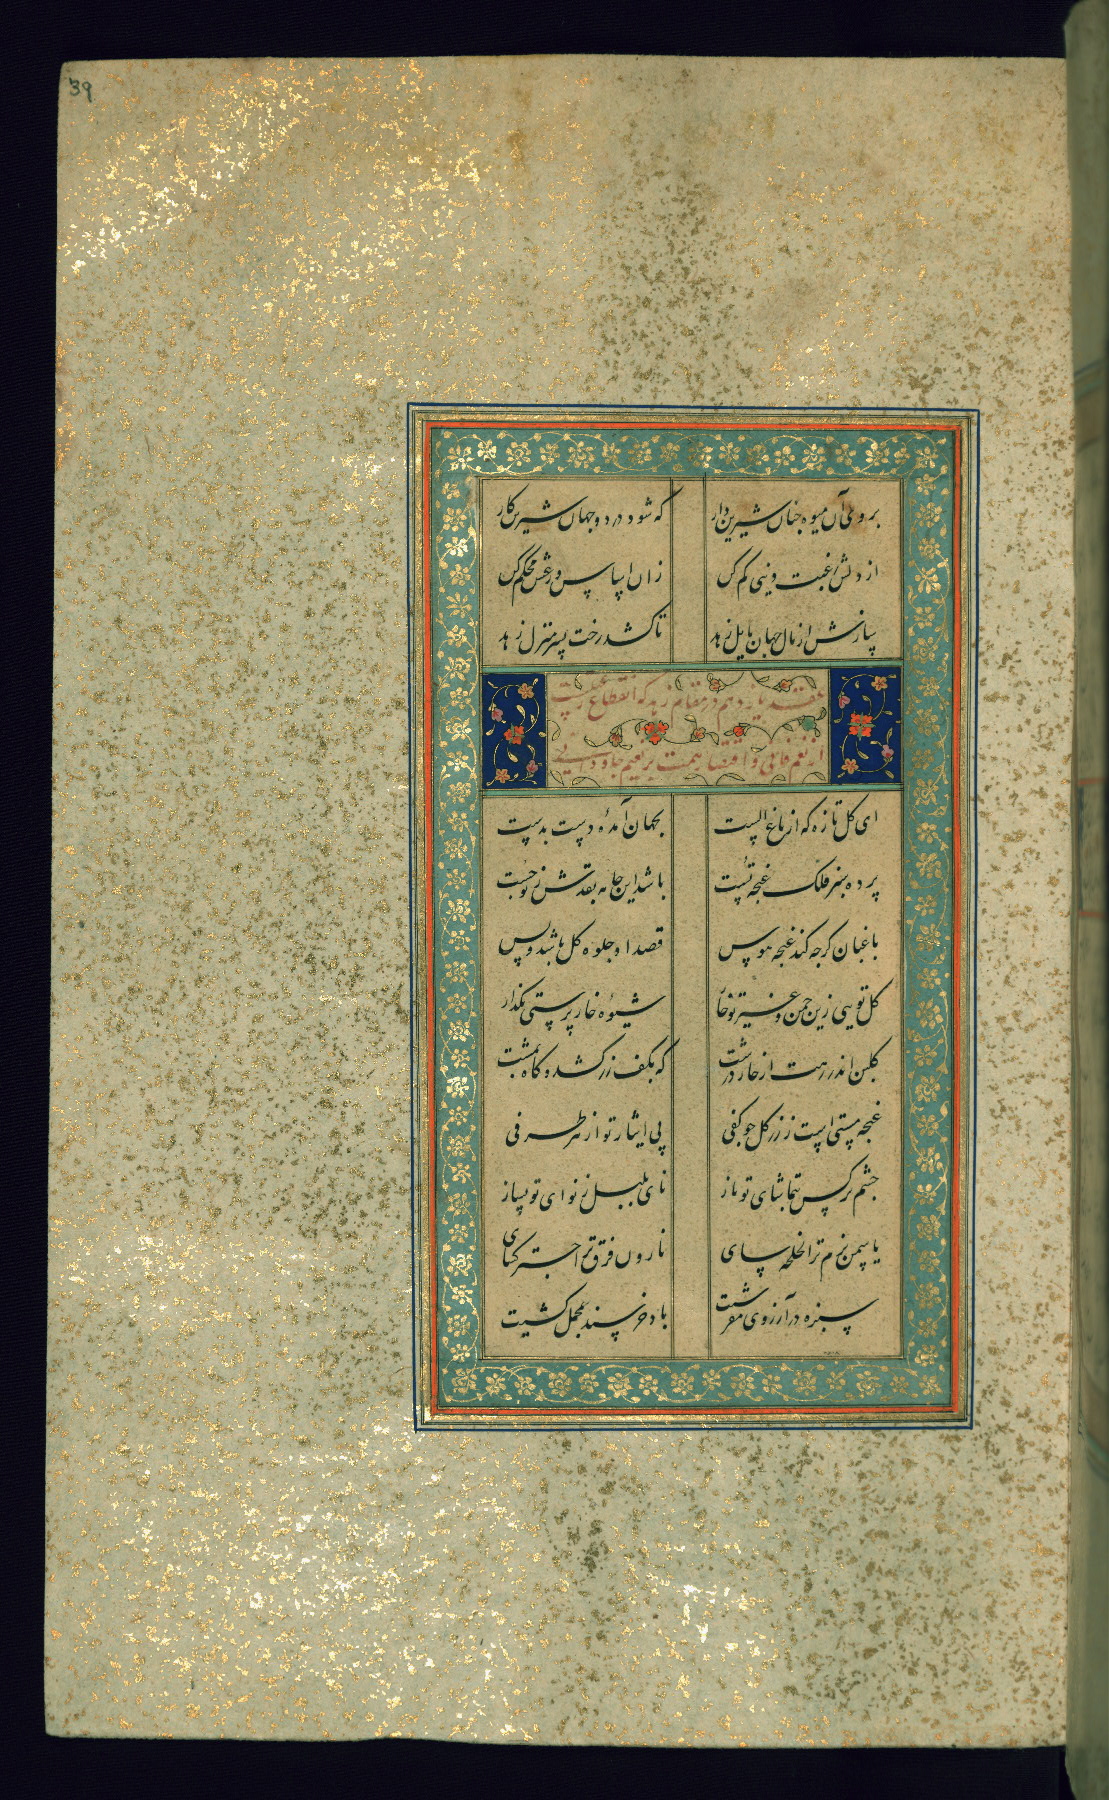 39
بر وی آن میوه چنان شیرین دار که شود در دو جهان شیرین کار
از دلش رغبت دنیی کم کن زان اساس ورعش محکم کن
سازش از مال جهان مایل زهد تا کشد رخت بسر منزل زهد
عقد یازدهم در مقام زهد که انقطاع رغبتست
از نعیم فانی و اقتصار همت بر نعیم جاودانی
ای گل تازه که از باغ الست بجهان آمدهٔ دست بدست
پرده سبز فلک غنچه تست باشد این جامه بقد تو چست
باغبان گرچه کند غنچه هوس قصد او جلوه گل باشد و بس
گل تویی زین چمن و غیر تو خار شیوه خار پرستی بگذار
گلبن اندر رهت از خار درشت که بکف زر کشد و گاه بمشت
غنچه مستی است ز زر گل چو کفی پی ایثار تو از هر طرفی
چشم نرگس بتماشای تو باز نای بلبل ز نوای تو بساز
یاسمن بزم ترا لخلخه سای نارون فرق ترا چتر گشای
سبزه در آرزوی مفرشت باد خرسند بمحمل کشیت